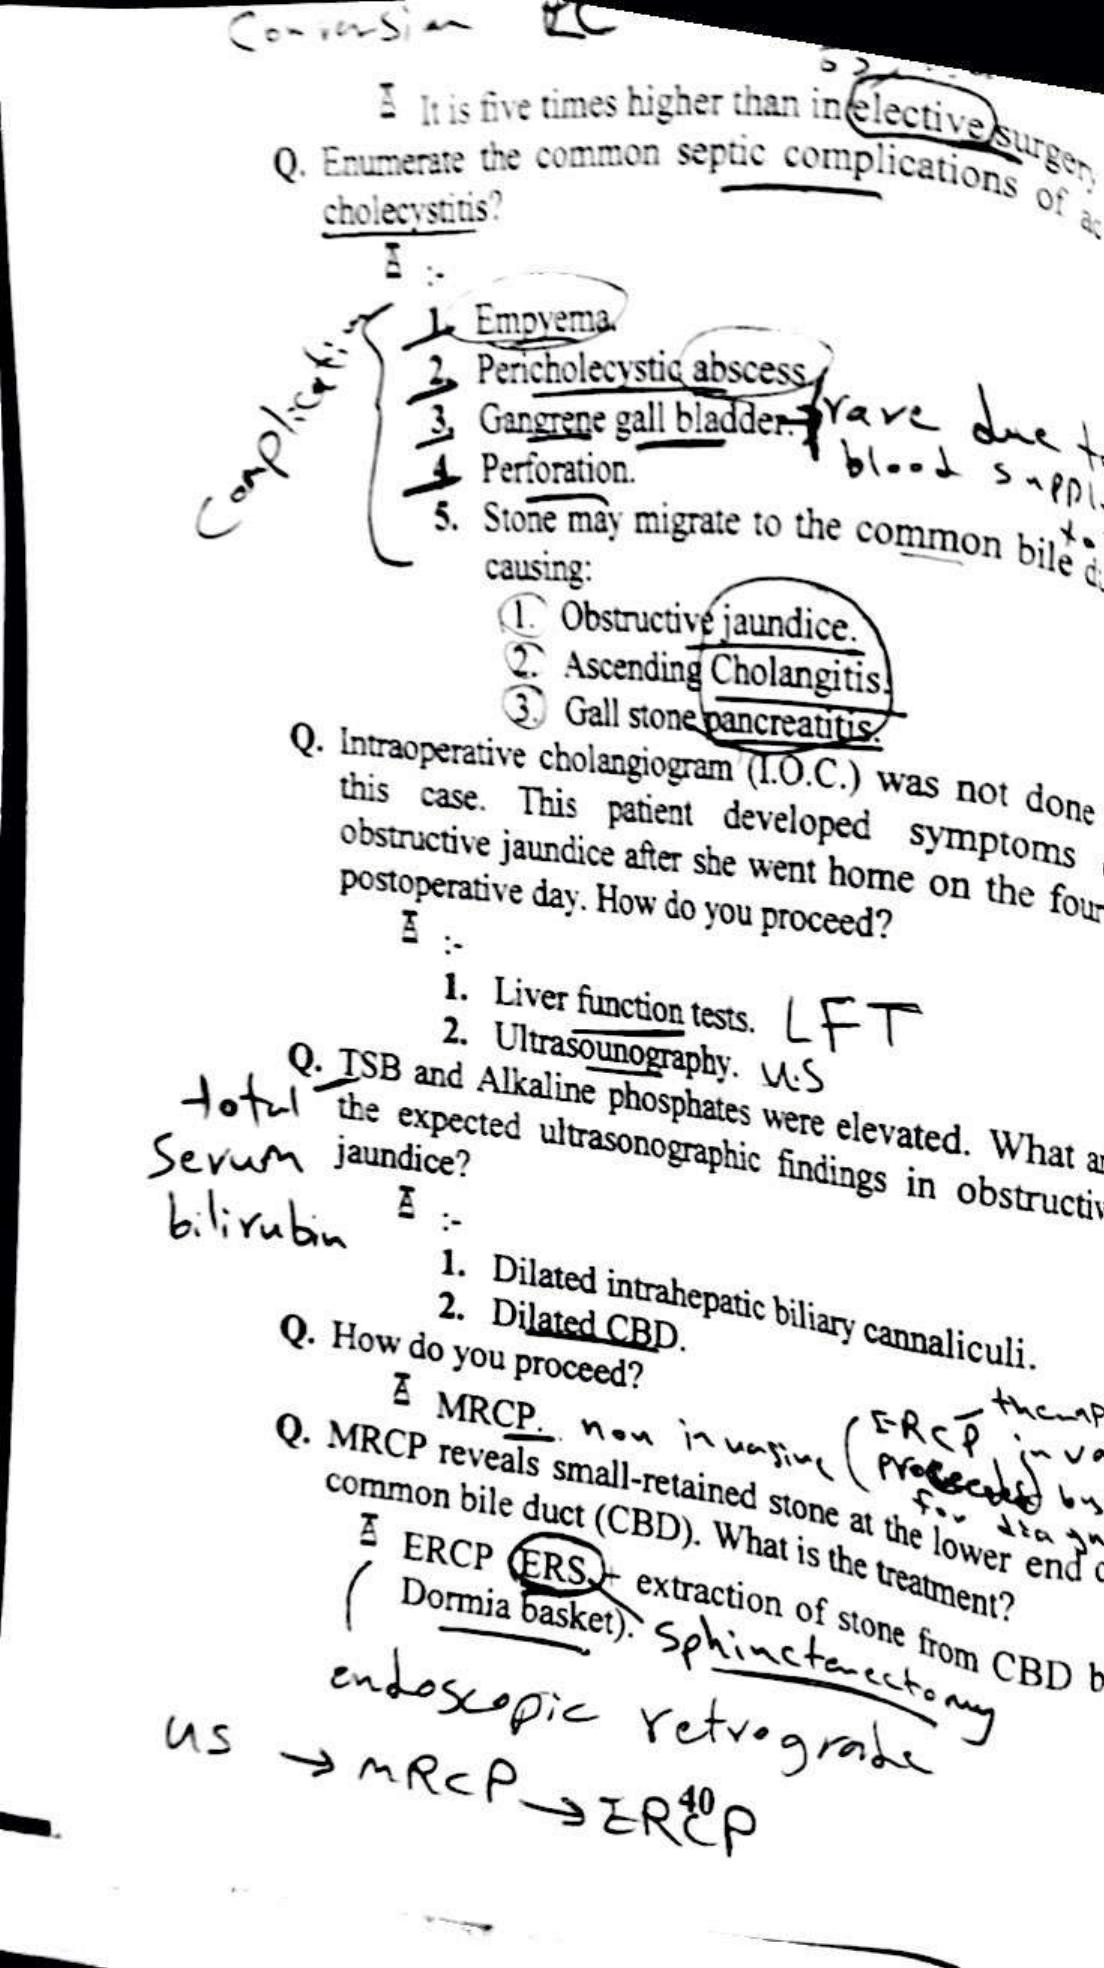 Conversion LC
A It is five times higher than in elective surgery
Q. Enumerate the common septic complications of
cholecystitis?
A :-
Complication
1. Empyema.
2. Pericholecystic abscess
3. Gangrene gall bladder. rare due to
blood supply
4. Perforation.
5. Stone may migrate to the common bile
causing:
1. Obstructive jaundice.
2. Ascending Cholangitis.
3. Gall stone pancreatitis.
Q. Intraoperative cholangiogram (I.O.C.) was not done
this case. This patient developed symptoms
obstructive jaundice after she went home on the four
postoperative day. How do you proceed?
A :-
1. Liver function tests. LFT
2. Ultrasounography. U.S
Q. TSB and Alkaline phosphates were elevated. What
the expected ultrasonographic findings in obstructiv
jaundice?
total
Serum
bilirubin
A :-
1. Dilated intrahepatic biliary cannaliculi.
2. Dilated CBD.
Q. How do you proceed?
A MRCP. non invasive (ERCP
Q. MRCP reveals small-retained stone at the lower end
common bile duct (CBD). What is the treatment?
A ERCP (ERS + extraction of stone from CBD
Dormia basket). Sphincterectomy
endoscopic retrograde
US → MRCP → ERCP
40